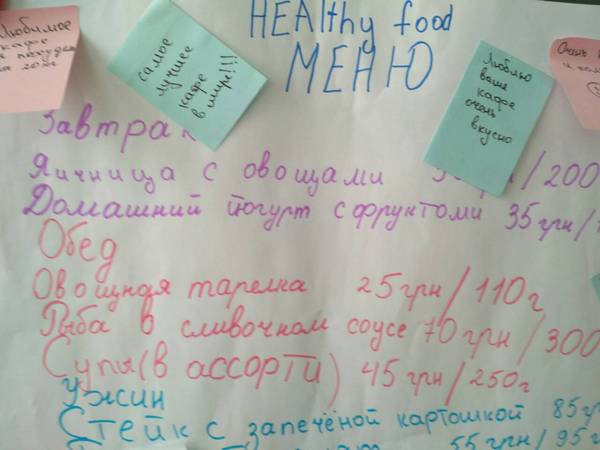 HEALthy food
МЕНЮ
Любимое
кафе
самое
лучшее
кафе
в мире!!!
Люблю
ваше
кафе
очень
вкусно
Очень
Завтрак
Яичница с овощами /200
Домашний йогурт с фруктоми 35грн/
Обед
Овощная тарелка 25грн/110г
Рыба в сливочном соусе 70грн/300
Супы(в ассорти) 45грн/250г
Ужин
Стейк с запечёной картошкой 85г
55грн/95г